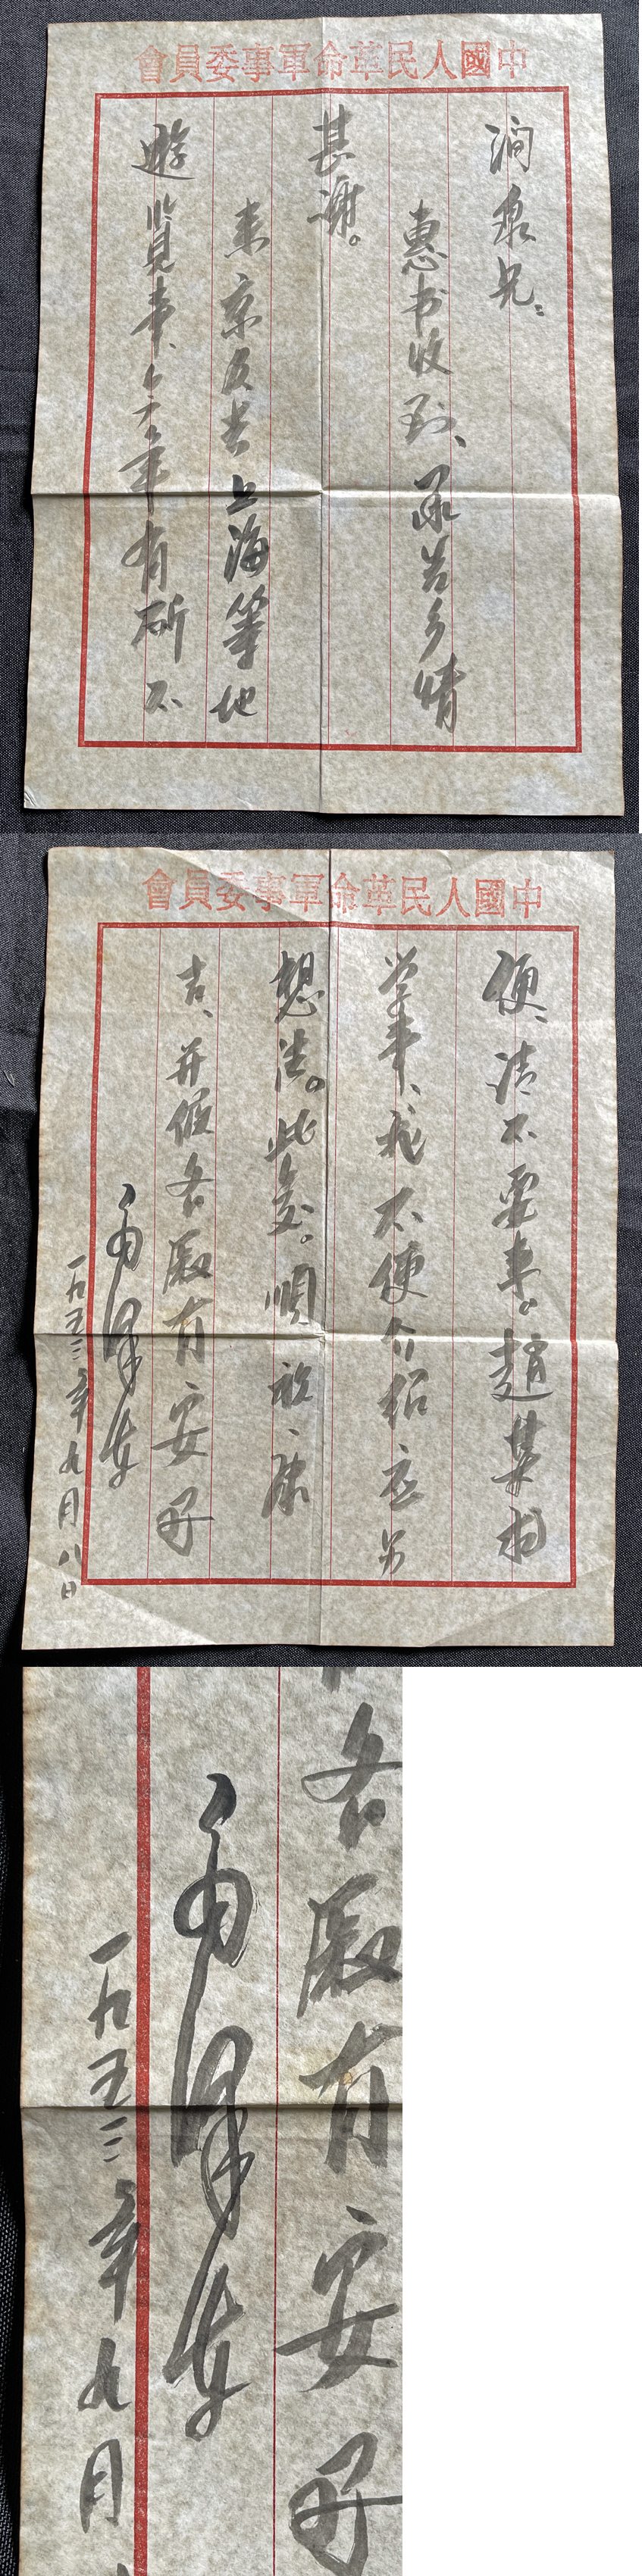 會員委事軍命革民人國中
澗泉兄：
惠书收到、承告乡情
甚谢。
来京及去上海等地
遊览事、今年有所不
會員委事軍命革民人國中
便、请不要来。赵某求
学事、我不便介绍、应另
想法。此复。顺祝健康
吉、并候各戚友安好
毛泽东
一九五三年九月八日
各
戚友安好
毛泽东
一九五三年九月